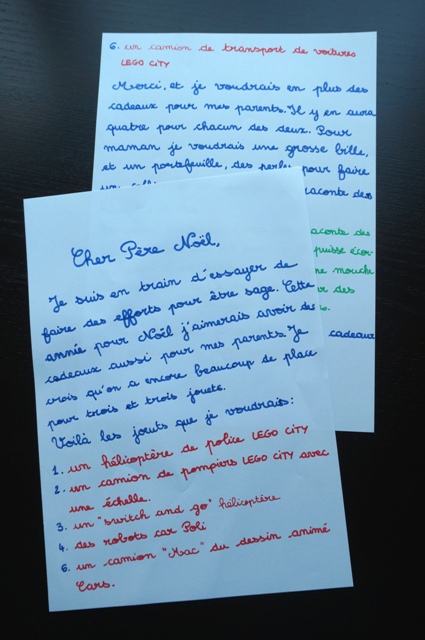 Cher Père Noël,
Je suis en train d'essayer de
faire des efforts pour être sage. Cette
année pour Noël j'aimerais avoir des
cadeaux aussi pour mes parents. Je
crois qu'on a encore beaucoup de place
pour trois et trois jouets.
Voilà les jouts que je voudrais:
1. un hélicoptère de police LEGO CITY
2. un camion de pompiers LEGO CITY avec
une échelle.
3. un "switch and go" hélicoptère
4. des robots car Poli
6. un camion "Mac" du dessin animé
Cars.
6. un camion de transport de voitures
LEGO CITY
Merci, et je voudrais en plus des
cadeaux pour mes parents. Il y en aura
quatre pour chacun des deux. Pour
maman je voudrais une grosse bille,
et un portefeuille, des pour faire
un raconte des
raconte des
puisse écor-
mouche
des
cadeaux